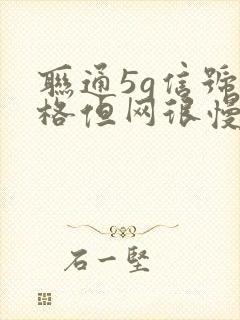 聯通5g信號
格但网很慢
石一堅